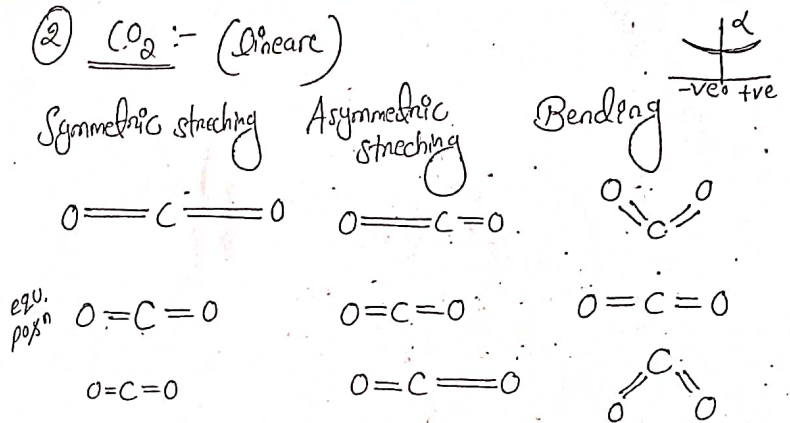 ② CO2 :- (Lineare)
α
-ve 0 +ve
Symmetric streching Asymmetric streching Bending
O=C=O O=C=O O=C=O
equ. posn O=C=O O=C=O O=C=O
O=C=O O=C=O O=C=O